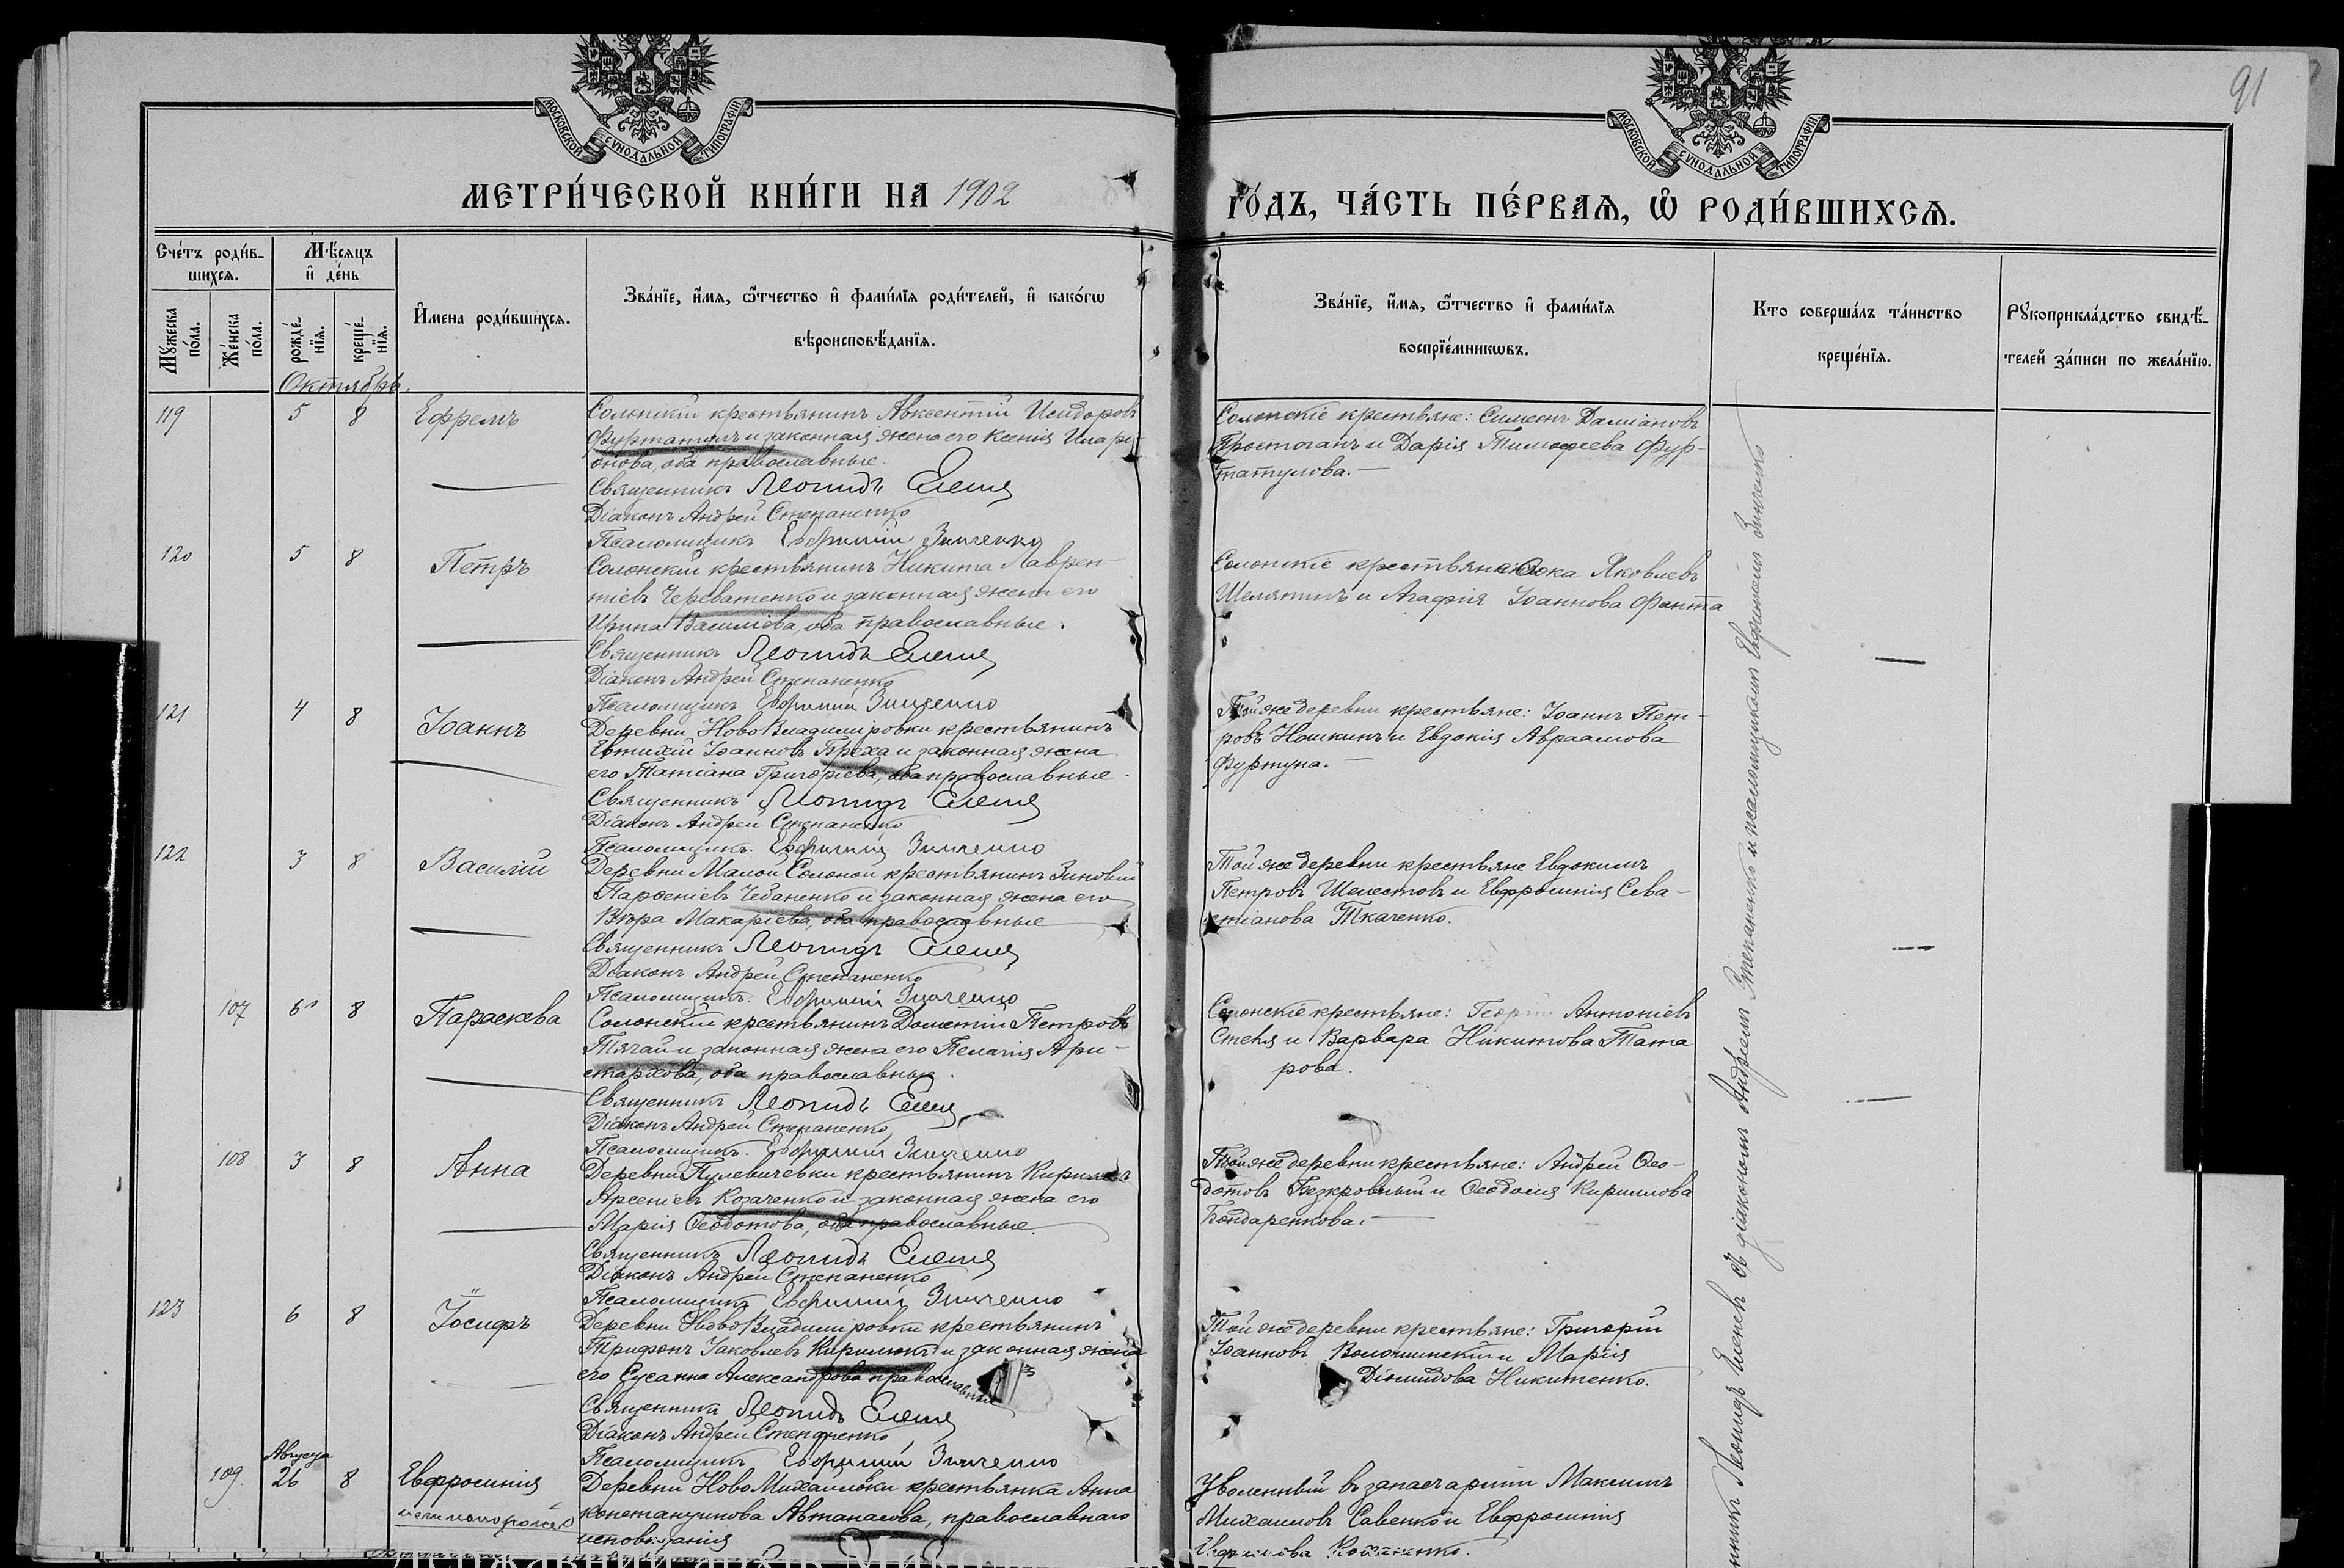 91
МОСКОВСКОЙ СѴНОДАЛЬНОЙ ТИПОГРАФІИ
МОСКОВСКОЙ СѴНОДАЛЬНОЙ ТИПОГРАФІИ
МЕТРИ́ЧЕСКОЙ КНИ́ГИ НА 1902
ГО́ДЪ, ЧА́СТЬ ПЕ́РВАѦ, Ѽ РОДИ́ВШИХСѦ.
Сче́тъ роди́в-
шихсѧ.
Мѣ́сяцъ
и҆ де́нь
Мꙋ́жеска по́ла.
Же́нска по́ла.
рожде́-
нїѧ.
креще́-
нїѧ.
И҆мена роди́вшихсѧ.
Зва́нїе, и҆́мѧ, ѻ҆́тчество и҆ фами́лїѧ роди́телей, и҆ како́гѡ
вѣроисповѣ́данїѧ.
Зва́нїе, и҆́мѧ, ѻ҆́тчество и҆ фами́лїѧ
воспрїе́мникѡвъ.
Кто соверша́лъ та́инство
креще́нїѧ.
Рꙋкоприкла́дство свидѣ́-
телей за́писи по жела́нїю.
Октябрь.
119 5 8 Ефремъ
Солонскій крестьянинъ Авксентій Исидоровъ
и законная жена его Ксенія Илари-
онова, оба православные.
Священникъ Леонидъ Елене
Діаконъ Андрей Степаненко
Псаломщикъ Евфимій Зинченко
Солонскіе крестьяне: Симеонъ Даміановъ
Простоганъ и Дарія Тимофеева Фур-
татулова.—
120 5 8 Петръ
Солонскій крестьянинъ Никита Лаврен-
тіевъ Череватенко и законная жена его
Ирина Василіева, оба православные.
Священникъ Леонидъ Елене
Діаконъ Андрей Степаненко
Псаломщикъ Евфимій Зинченко
Солонскіе крестьяне: Яковлевъ
и Агафія Іоаннова
121 4 8 Іоаннъ
Деревни НовоВладимировки крестьянинъ
Евтихій Іоанновъ Греха и законная жена
его Татіана Григоріева, оба православные.
Священникъ Леонидъ Елене
Діаконъ Андрей Степаненко
Псаломщикъ Евфимій Зинченко
Той же деревни крестьяне: Іоаннъ Пет-
ровъ Ношкинъ и Евдокія Авраамова
Фуртуна.—
122 3 8 Василій
Деревни Малой Солоной крестьянинъ Зиновій
Парѳеніевъ Чебаненко и законная жена его
Вѣра Макаріева, оба православные
Священникъ Леонидъ Елене
Діаконъ Андрей Степаненко
Псаломщикъ Евфимій Зинченко
Той же деревни крестьяне Евдокимъ
Петровъ Шелестовъ и Евфросинія Сева-
стіанова Ткаченко.
107 6 8 Параскева
Солонскій крестьянинъ Дометій Петровъ
Тягай и законная жена его Пелагія Ари-
стархова, оба православные.
Священникъ Леонидъ Елене
Діаконъ Андрей Степаненко
Псаломщикъ Евфимій Зинченко
Солонскіе крестьяне: Георгій Антоніевъ
и Варвара Никитова Тата
рова.
108 3 8 Анна
Деревни Пулевичевки крестьянинъ Кириллъ
Арсеніевъ Козаченко и законная жена его
Марія Ѳеодотова, оба православные.
Священникъ Леонидъ Елене
Діаконъ Андрей Степаненко
Псаломщикъ Евфимій Зинченко
Той же деревни крестьяне: Андрей Ѳео-
дотовъ Безкровный и Ѳеодосія Кириллова
Бондаренкова.—
123 6 8 Іосифъ
Деревни НовоВладимировки крестьянинъ
Трифонъ Іаковлевъ Кирилюкъ и законная жена
его Сусанна Александрова православные
Священникъ Леонидъ Елене
Діаконъ Андрей Степаненко
Псаломщикъ Евфимій Зинченко
Той же деревни крестьяне: Григорій
Іоанновъ Волошинскій и Марія
Діомидова Никитенко.
Августа
109. 26 8 Евфросинія
Деревни НовоМихайловки крестьянка Анна
Константинова Автанасова, православнаго
исповѣданія
Уволенный въ запасъ арміи Максимъ
Михаиловъ Савенко и Евфросинія
Леонидъ Елене съ діакономъ Андреемъ Степаненко и псаломщикомъ Евфиміемъ Зинченко